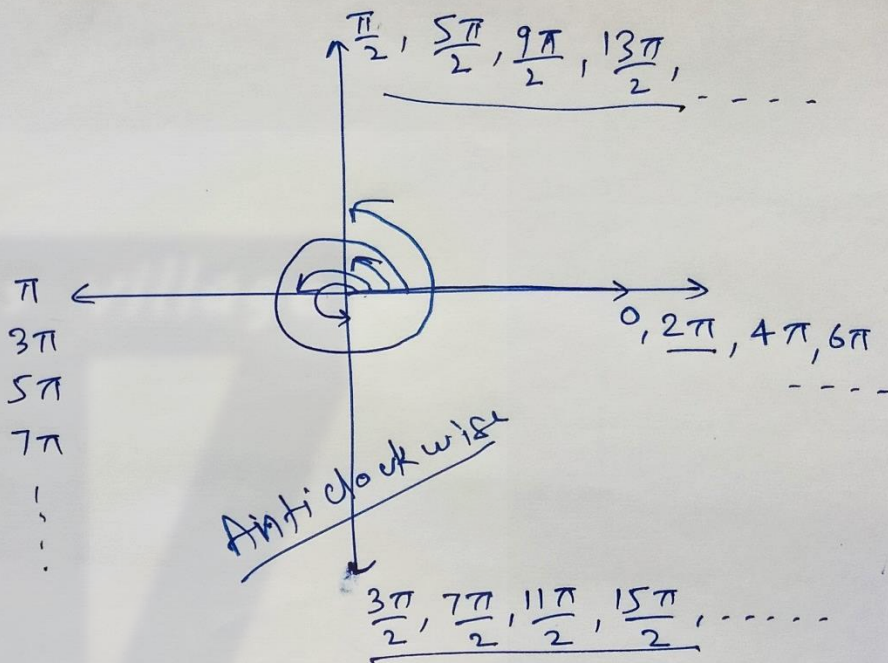 π/2, 5π/2, 9π/2, 13π/2, - - - -
π
0, 2π, 4π, 6π
- - - -
3π
5π
7π
Anticlockwise
3π/2, 7π/2, 11π/2, 15π/2, ......